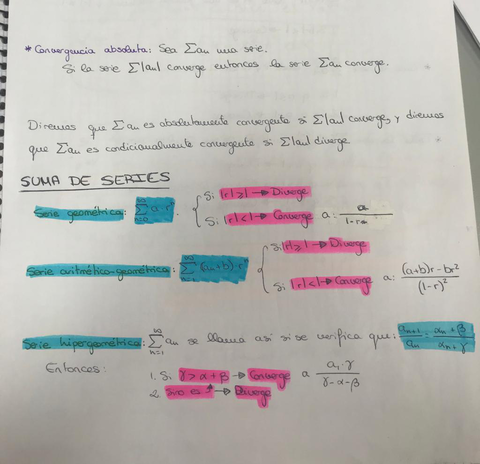 * Convergencia absoluta: Sea Σan una serie.
Si la serie Σ|an| converge entonces la serie Σan converge.
Diremos que Σan es absolutamente convergente si Σ|an| converge, y diremos
que Σan es condicionalmente convergente si Σ|an| diverge
SUMA DE SERIES
Serie geométrica: ∞Σn=0 a·r
Si |r|≥1 → Diverge
Si |r|<1 → Converge a: a/(1-r)
Serie aritmético-geométrica: ∞Σn=1 (an+b)·r
Si |r|≥1 → Diverge
Si |r|<1 → Converge a: ((a+b)r - br²)/(1-r)²
Serie hipergeométrica: ∞Σn=1 an se llama así si se verifica que: an+1/an = (αn+β)/(αn+γ)
Entonces:
1. Si γ>α+β → Converge a (a1·γ)/(γ-α-β)
2. Si no es → Diverge